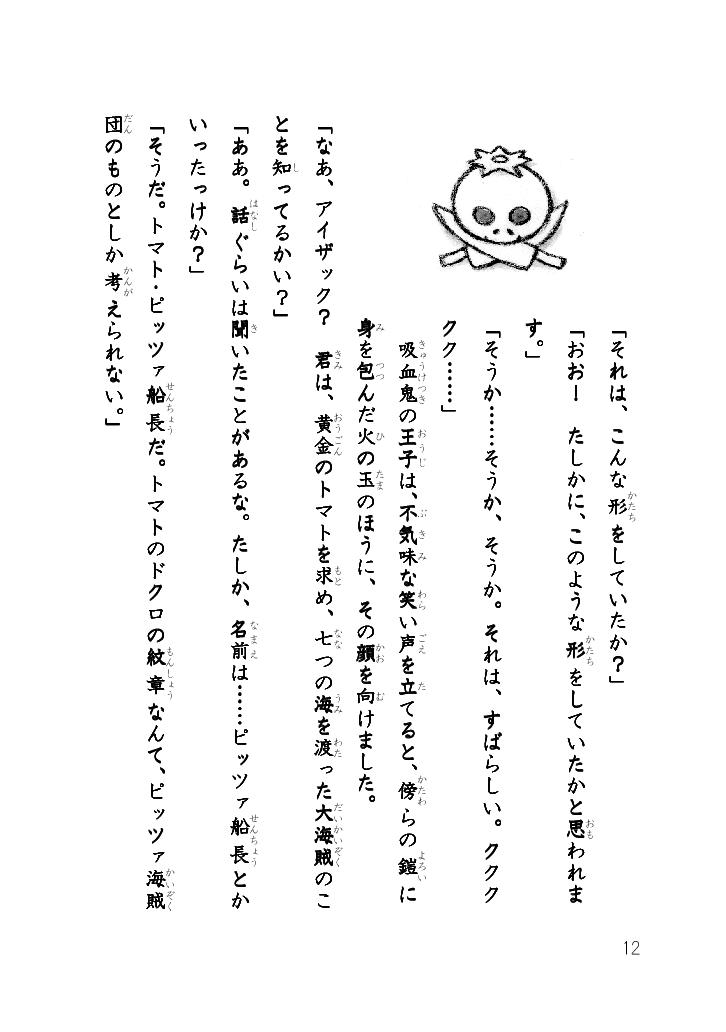 「それは、こんな形をしていたか？」
「おお！　たしかに、このような形をしていたかと思われま
す。」
「そうか……そうか、そうか。それは、すばらしい。ククク
クク……」
　吸血鬼の王子は、不気味な笑い声を立てると、傍らの鎧に
身を包んだ火の玉のほうに、その顔を向けました。
「なあ、アイザック？　君は、黄金のトマトを求め、七つの海を渡った大海賊のこ
とを知ってるかい？」
「ああ。話ぐらいは聞いたことがあるな。たしか、名前は……ピッツァ船長とか
いったっけか？」
「そうだ。トマト・ピッツァ船長だ。トマトのドクロの紋章なんて、ピッツァ海賊
団のものとしか考えられない。」
12